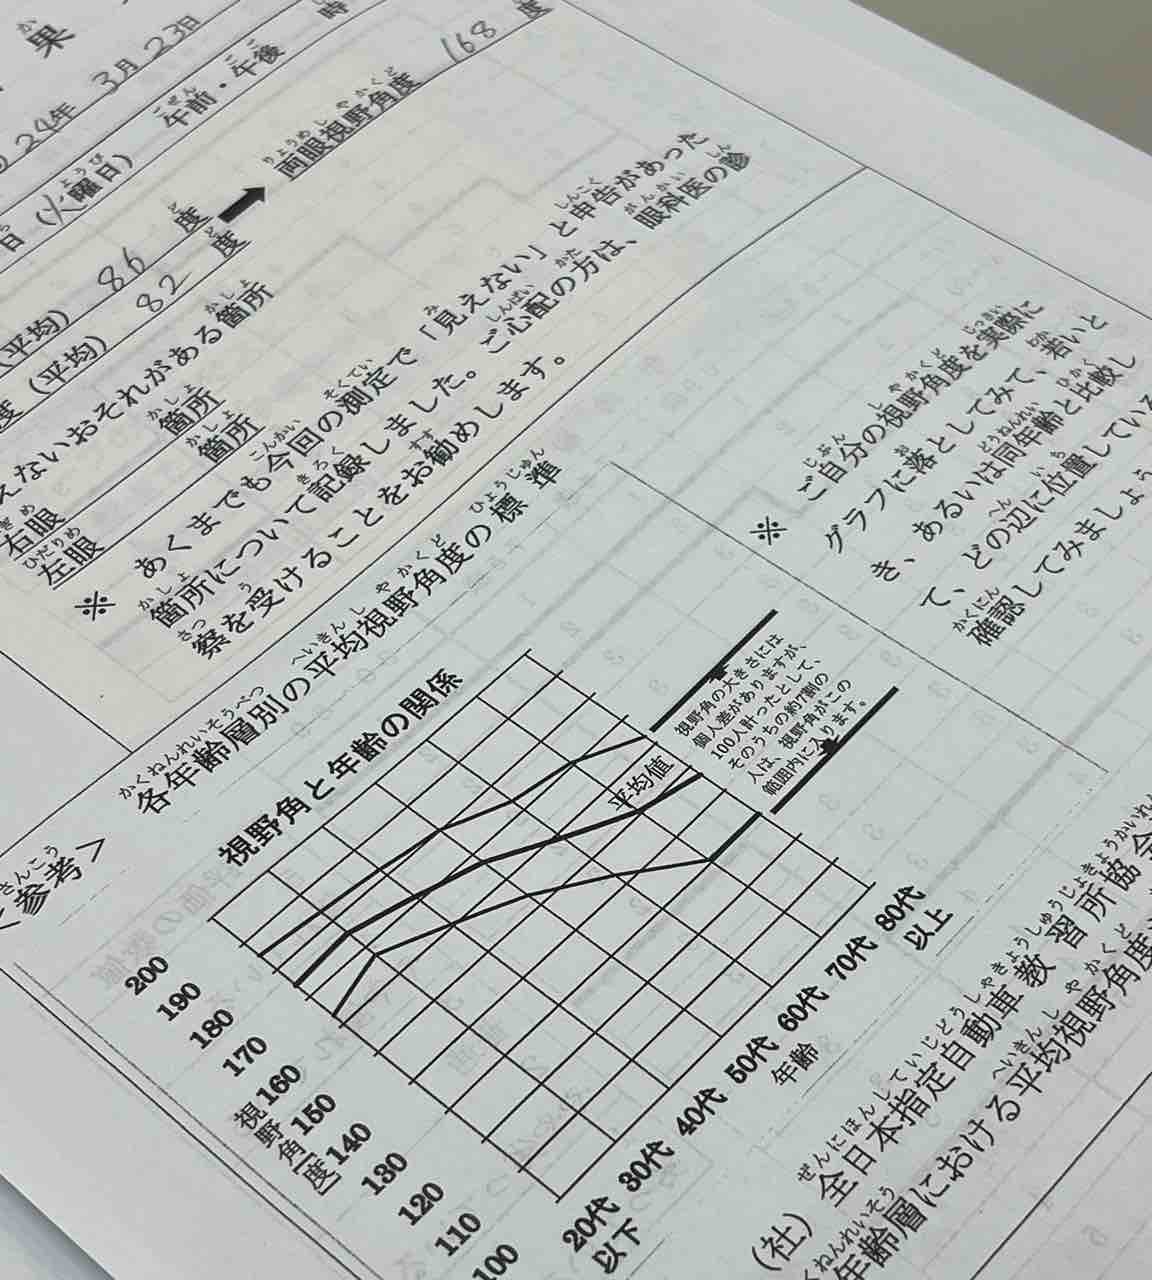 果
24年 3月 23日
時
日 (火曜日) 午前・午後
(平均) 86 度
度 (平均) 82 度
➡ 両眼視野角度 168 度
えないおそれがある箇所
右眼 箇所
左眼 箇所
※ あくまでも今回の測定で「見えない」と申告があった
箇所について記録しました。ご心配の方は、眼科医の診
察を受けることをお勧めします。
<参考>
各年齢層別の平均視野角度の標準
視野角と年齢の関係
平均値
視野角の大きさには
個人差がありますが、
100人計ったとして、
そのうちの約7割の
人は、視野角がこの
範囲内に入ります。
200
190
180
170
160
150
140
130
120
110
100
視野角[度]
20代以下 30代 40代 50代 60代 70代 80代以上
年齢
※ ご自分の視野角度を実際に
グラフに落としてみて、若いと
き、あるいは同年齢と比較し
て、どの辺に位置している
確認してみましょう
(社) 全日本指定自動車教習所協会
年齢層における平均視野角度